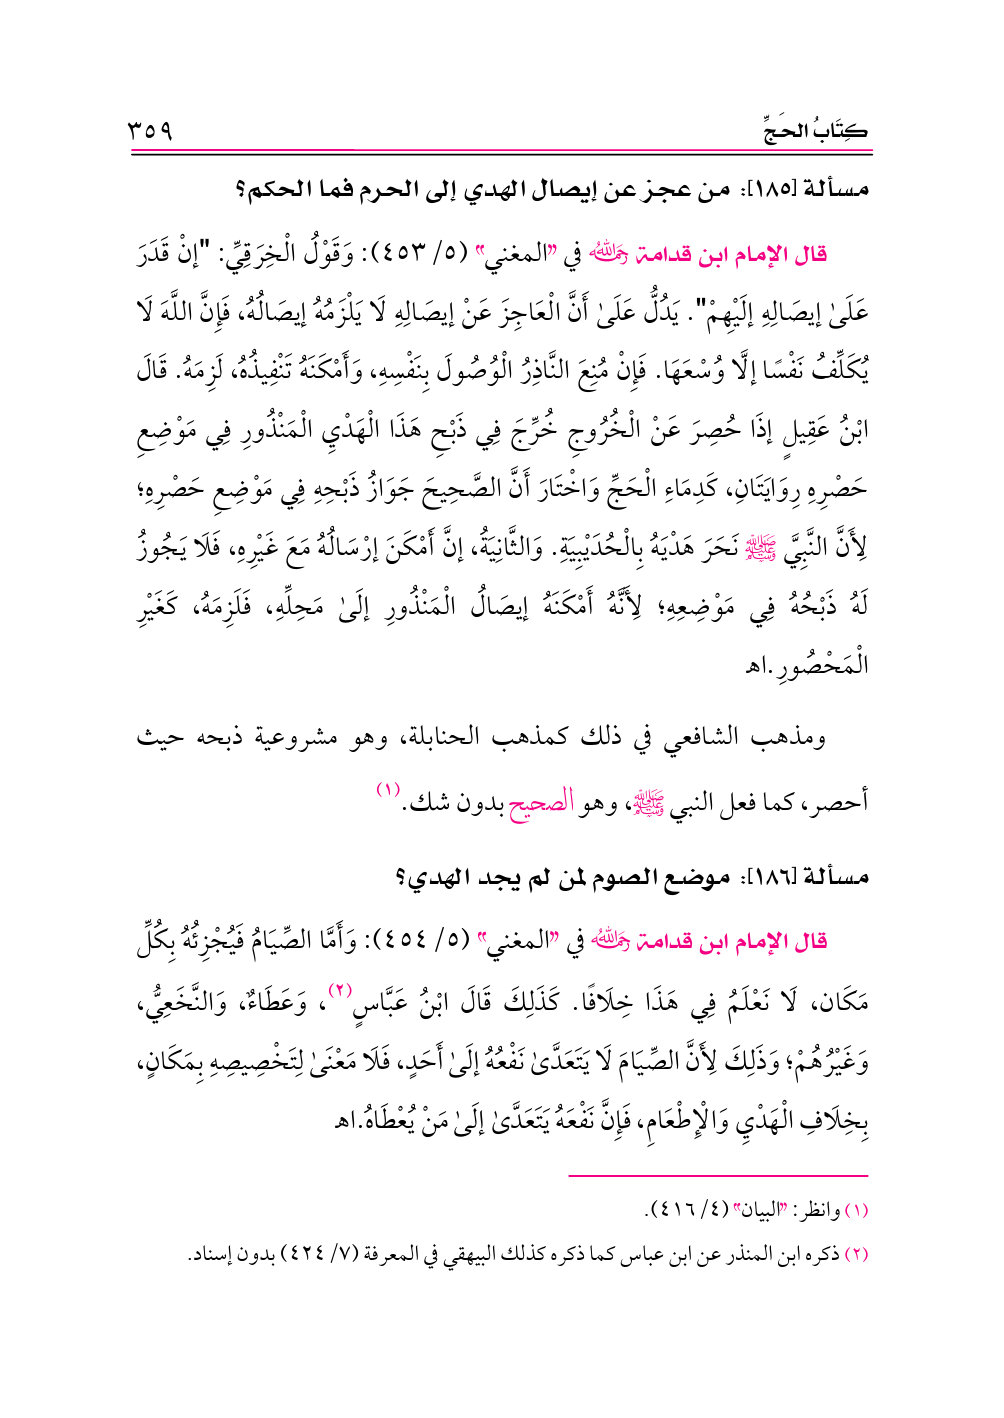 كِتَابُ الحَجِّ ٣٥٩
مسألة [١٨٥]: من عجز عن إيصال الهدي إلى الحرم فما الحكم؟
قال الإمام ابن قدامة رَحِمَهُ اللهُ في "المغني" (٥/ ٤٥٣): وَقَوْلُ الْخِرَقِيِّ: "إنْ قَدَرَ
عَلَىٰ إيصَالِهِ إلَيْهِمْ". يَدُلُّ عَلَىٰ أَنَّ الْعَاجِزَ عَنْ إيصَالِهِ لَا يَلْزَمُهُ إيصَالُهُ، فَإِنَّ اللَّهَ لَا
يُكَلِّفُ نَفْسًا إلَّا وُسْعَهَا. فَإِنْ مُنِعَ النَّاذِرُ الْوُصُولَ بِنَفْسِهِ، وَأَمْكَنَهُ تَنْفِيذُهُ، لَزِمَهُ. قَالَ
ابْنُ عَقِيلٍ إذَا حُصِرَ عَنْ الْخُرُوجِ خُرِّجَ فِي ذَبْحِ هَذَا الْهَدْيِ الْمَنْذُورِ فِي مَوْضِعِ
حَصْرِهِ رِوَايَتَانِ، كَدِمَاءِ الْحَجِّ وَاخْتَارَ أَنَّ الصَّحِيحَ جَوَازُ ذَبْحِهِ فِي مَوْضِعِ حَصْرِهِ؛
لِأَنَّ النَّبِيَّ ﷺ نَحَرَ هَدْيَهُ بِالْحُدَيْبِيَةِ. وَالثَّانِيَةُ، إنَّ أَمْكَنَ إرْسَالُهُ مَعَ غَيْرِهِ، فَلَا يَجُوزُ
لَهُ ذَبْحُهُ فِي مَوْضِعِهِ؛ لِأَنَّهُ أَمْكَنَهُ إيصَالُ الْمَنْذُورِ إلَىٰ مَحِلِّهِ، فَلَزِمَهُ، كَغَيْرِ
الْمَحْصُورِ.اهـ
ومذهب الشافعي في ذلك كمذهب الحنابلة، وهو مشروعية ذبحه حيث
أحصر، كما فعل النبي ﷺ، وهو الصحيح بدون شك.(١)
مسألة [١٨٦]: موضع الصوم لمن لم يجد الهدي؟
قال الإمام ابن قدامة رَحِمَهُ اللهُ في "المغني" (٥/ ٤٥٤): وَأَمَّا الصِّيَامُ فَيُجْزِئُهُ بِكُلِّ
مَكَان، لَا نَعْلَمُ فِي هَذَا خِلَافًا. كَذَلِكَ قَالَ ابْنُ عَبَّاسٍ(٢)، وَعَطَاءٌ، وَالنَّخَعِيُّ،
وَغَيْرُهُمْ؛ وَذَلِكَ لِأَنَّ الصِّيَامَ لَا يَتَعَدَّىٰ نَفْعُهُ إلَىٰ أَحَدٍ، فَلَا مَعْنَىٰ لِتَخْصِيصِهِ بِمَكَانٍ،
بِخِلَافِ الْهَدْيِ وَالْإِطْعَامِ، فَإِنَّ نَفْعَهُ يَتَعَدَّىٰ إلَىٰ مَنْ يُعْطَاهُ.اهـ
(١) وانظر: "البيان" (٤/ ٤١٦).
(٢) ذكره ابن المنذر عن ابن عباس كما ذكره كذلك البيهقي في المعرفة (٧/ ٤٢٤) بدون إسناد.